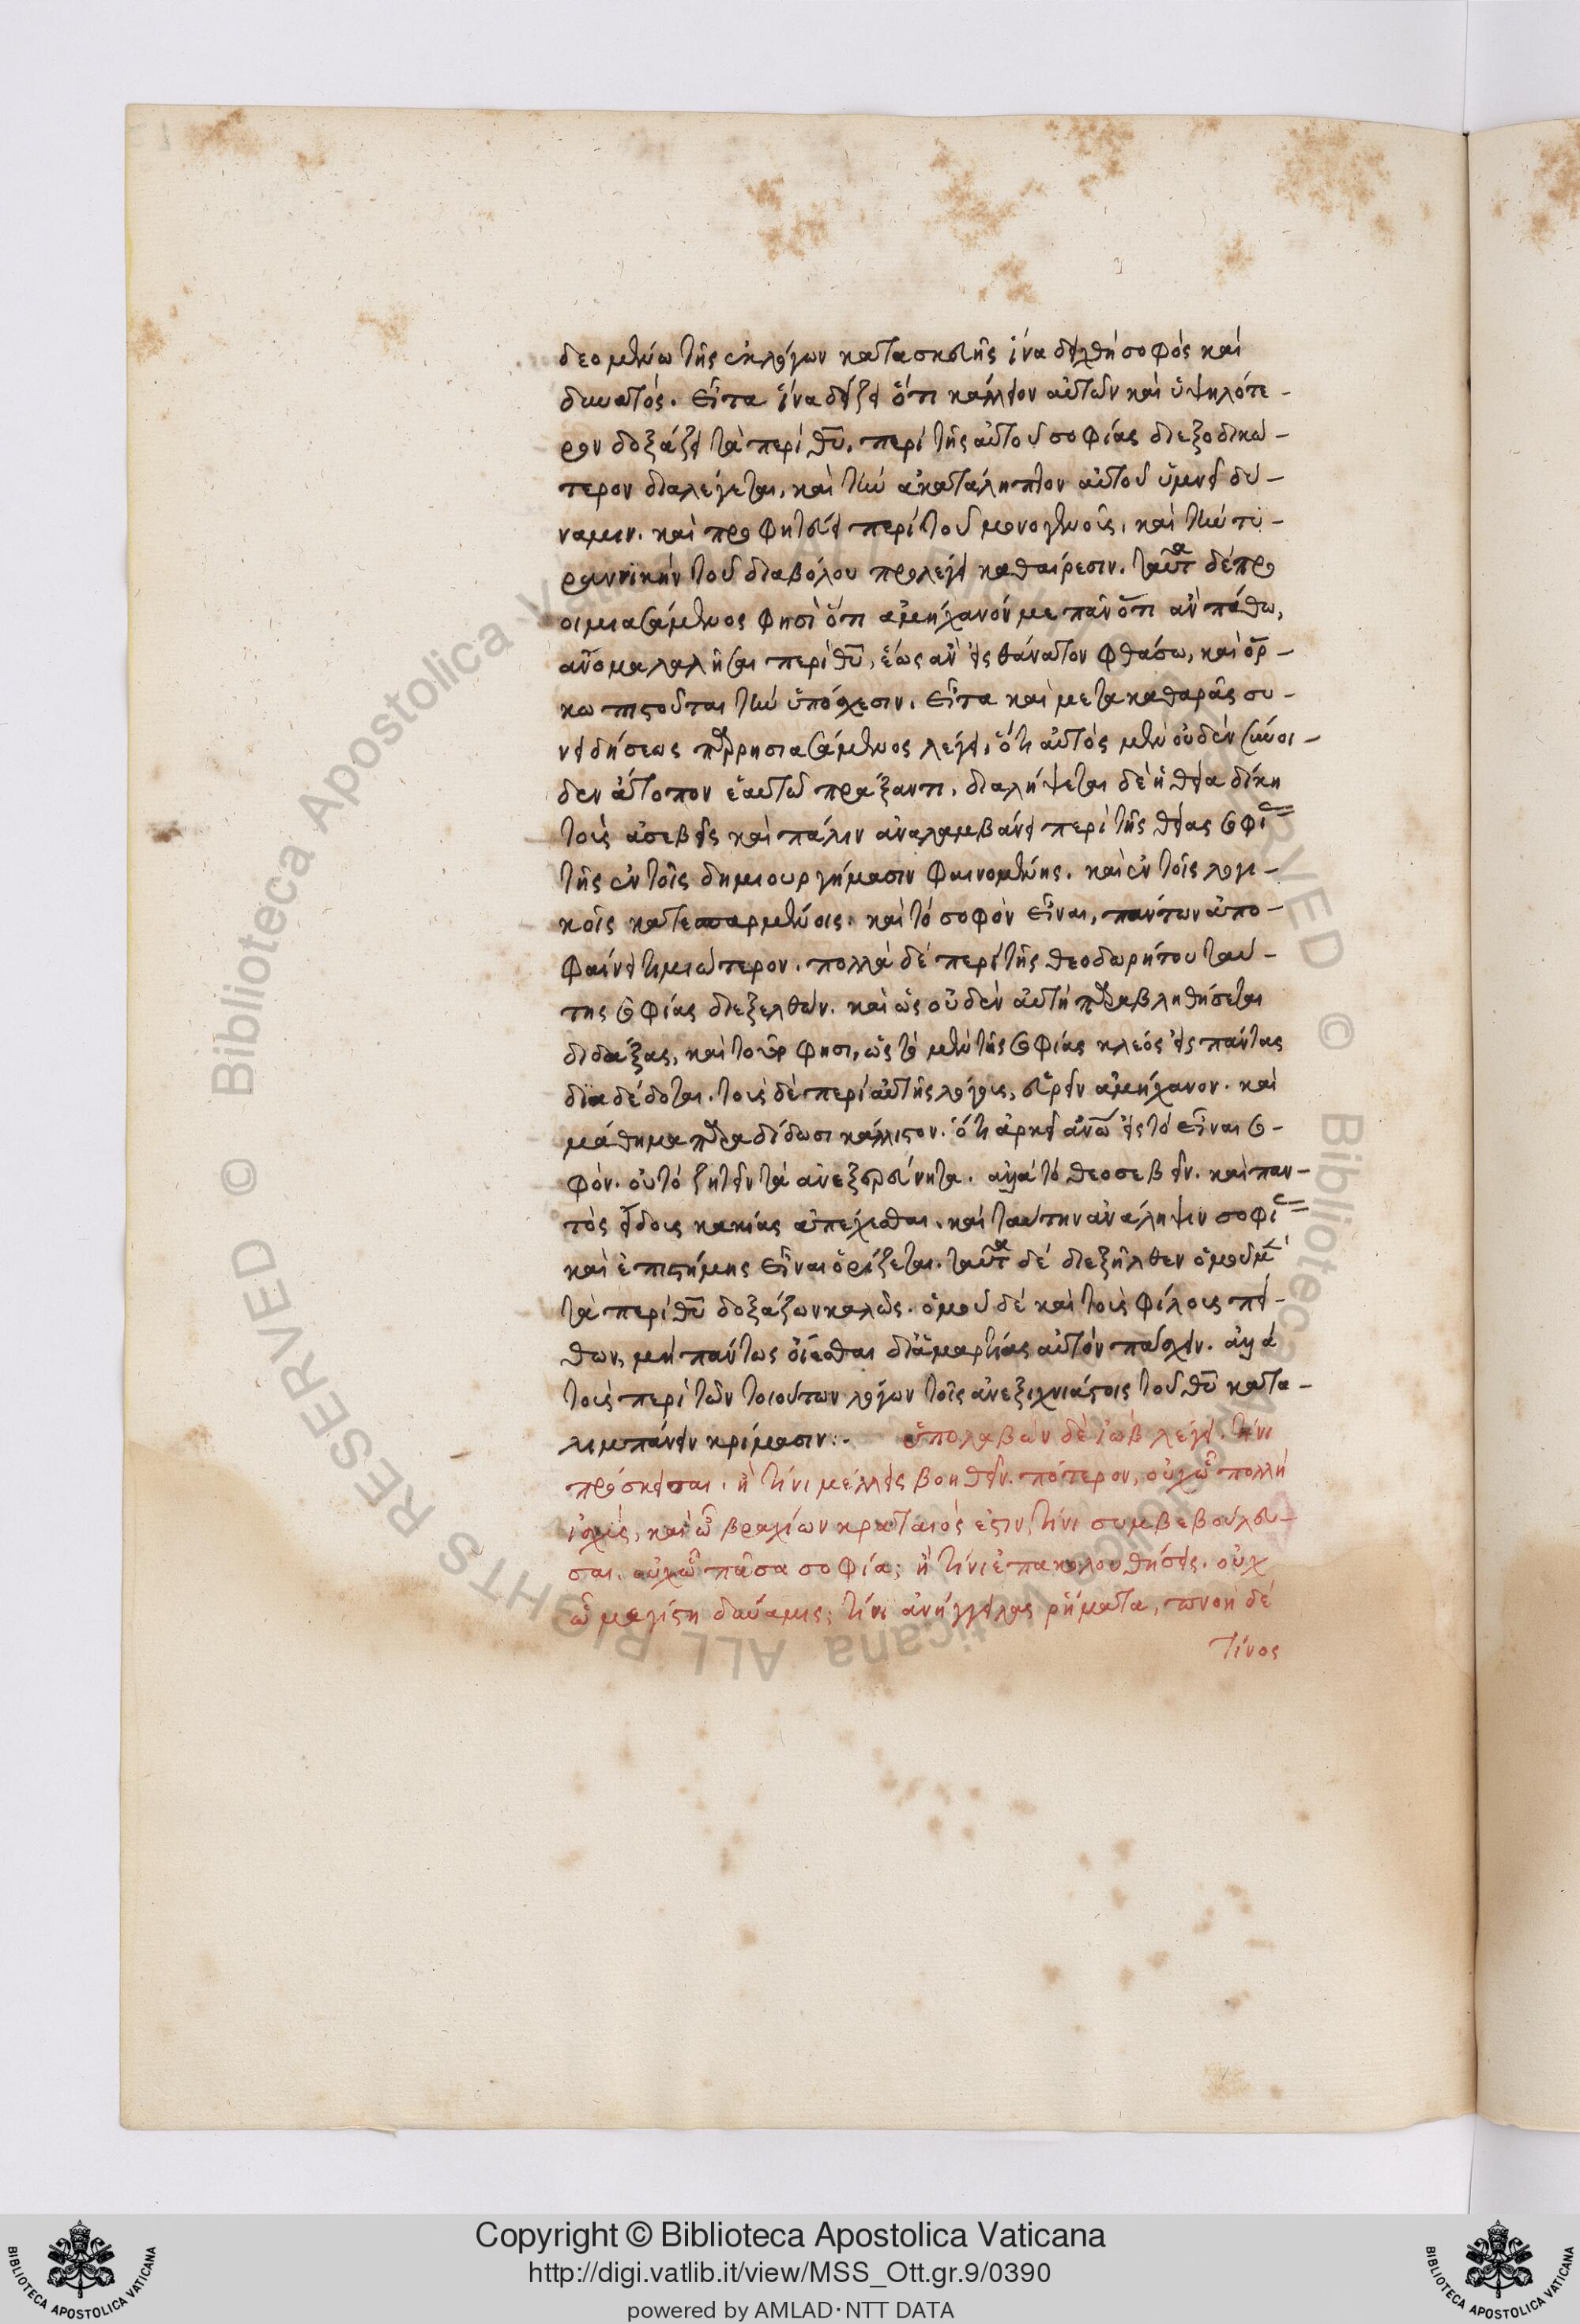 δεομένω τῆς ἐκ λόγων κατασκευῆς ἵνα δειχθῆ σοφὸς καὶ
δυνατός. εἶτα ἵνα δείξη ὅτι κάλλιον αὐτῶν καὶ ὑψηλότε-
ρον δοξάζει τὰ περὶ θυ, περὶ τῆς αὐτοῦ σοφίας διεξοδικώ-
τερον διαλέγεται, καὶ τὴν ἀκατάληπτον αὐτοῦ ὑμνεῖ δύ-
ναμιν. καὶ προφητεύει περὶ τοῦ μονογενοῦς, καὶ τὴν τυ-
ραννικὴν τοῦ διαβόλου προλέγει καθαίρεσιν. ταῦτα δὲ προ
οιμιασάμενος φησὶ ὅτι ἀμήχανόν με πᾶν ὅτι ἂν πάθω,
ἄνομα λαλῆσαι περὶ θυ, ἕως ἂν εἰς θάνατον φθάσω, καὶ ὅρ-
κω πιστοῦται τὴν ὑπόσχεσιν. εἶτα καὶ μετα καθαρᾶς συ-
νειδήσεως παρρησιασάμενος λέγει, ὅτι αὐτὸς μὲν οὐδὲν σύνοι-
δεν ἄτοπον ἑαυτῶ πράξαντι. διαλήψεται δὲ ἡ θεία δίκη
τοὺς ἀσεβεῖς καὶ πάλιν ἀναλαμβάνει περὶ τῆς θείας σοφί
τῆς ἐν τοῖς δημιουργήμασιν φαινομένης. καὶ ἐν τοῖς λογι-
κοῖς κατεσπαρμένοις. καὶ τὸ σοφὸν εἶναι, πάντων ἀπο-
φαίνει τιμιώτερον. πολλὰ δὲ περὶ τῆς θεοδωρήτου ταύ-
της σοφίας διεξελθών. καὶ ὡς οὐδὲν αὐτῆ παραβληθήσεται
διδάξας, καὶ τοῦτο φησι, ὡς τὸ μὲν τῆς σοφίας κλέος εἰς πάντας
διαδέδοται. τοὺς δὲ περὶ αὐτῆς λόγους, εὑρεῖν ἀμήχανον. καὶ
μάθημα παραδίδωσι κάλλιστον. ὅτι ἀρκεῖ ἀνω εἰς τὸ εἶναι σο-
φόν. οὐ τὸ ζητεῖν τὰ ἀνεξερεύνητα. ἀλλὰ τὸ θεοσεβεῖν. καὶ παν-
τὸς εἴδους κακίας ἀπέχεσθαι. καὶ ταύτην ἀνάληψιν σοφί
καὶ ἐπιστήμης εἶναι ὁρίζεται. ταῦτα δὲ διεξῆλθεν ὁμοῦ μ
τὰ περὶ θυ δοξάζων καλῶς. ὁμοῦ δὲ καὶ τοὺς φίλους πεί-
θων, μὴ πάντως οἴεσθαι δι' ἁμαρτίας αὐτὸν πάσχειν. ἀλλὰ
τοὺς περὶ τῶν τοιούτων λόγων τοῖς ἀνεξιχνιάστοις τοῦ θυ κατα-
λιμπάνειν κρίμασιν:. ὑπολαβὼν δὲ ἰὼβ λέγει. τίνι
πρόσκεισαι. ἢ τίνι μέλλεις βοηθεῖν. πότερον, οὐχ ὧ πολλὴ
ἰσχὺς, καὶ ὧ βραχίων κραταιός ἐστιν, τίνι συμβεβούλευ-
σαι. οὐχ ὧ πᾶσα σοφία; ἢ τίνι ἐπακολουθήσεις. οὐχ
ὧ μεγίστη δύναμις; τίνι ἀνήγγειλας ῥήματα, πνοὴ δέ
τίνος
Copyright © Biblioteca Apostolica Vaticana
http://digi.vatlib.it/view/MSS_Ott.gr.9/0390
powered by AMLAD·NTT DATA
BIBLIOTECA APOSTOLICA VATICANA
BIBLIOTECA APOSTOLICA VATICANA
© Biblioteca Apostolica Vaticana ALL RIGHTS RESERVED